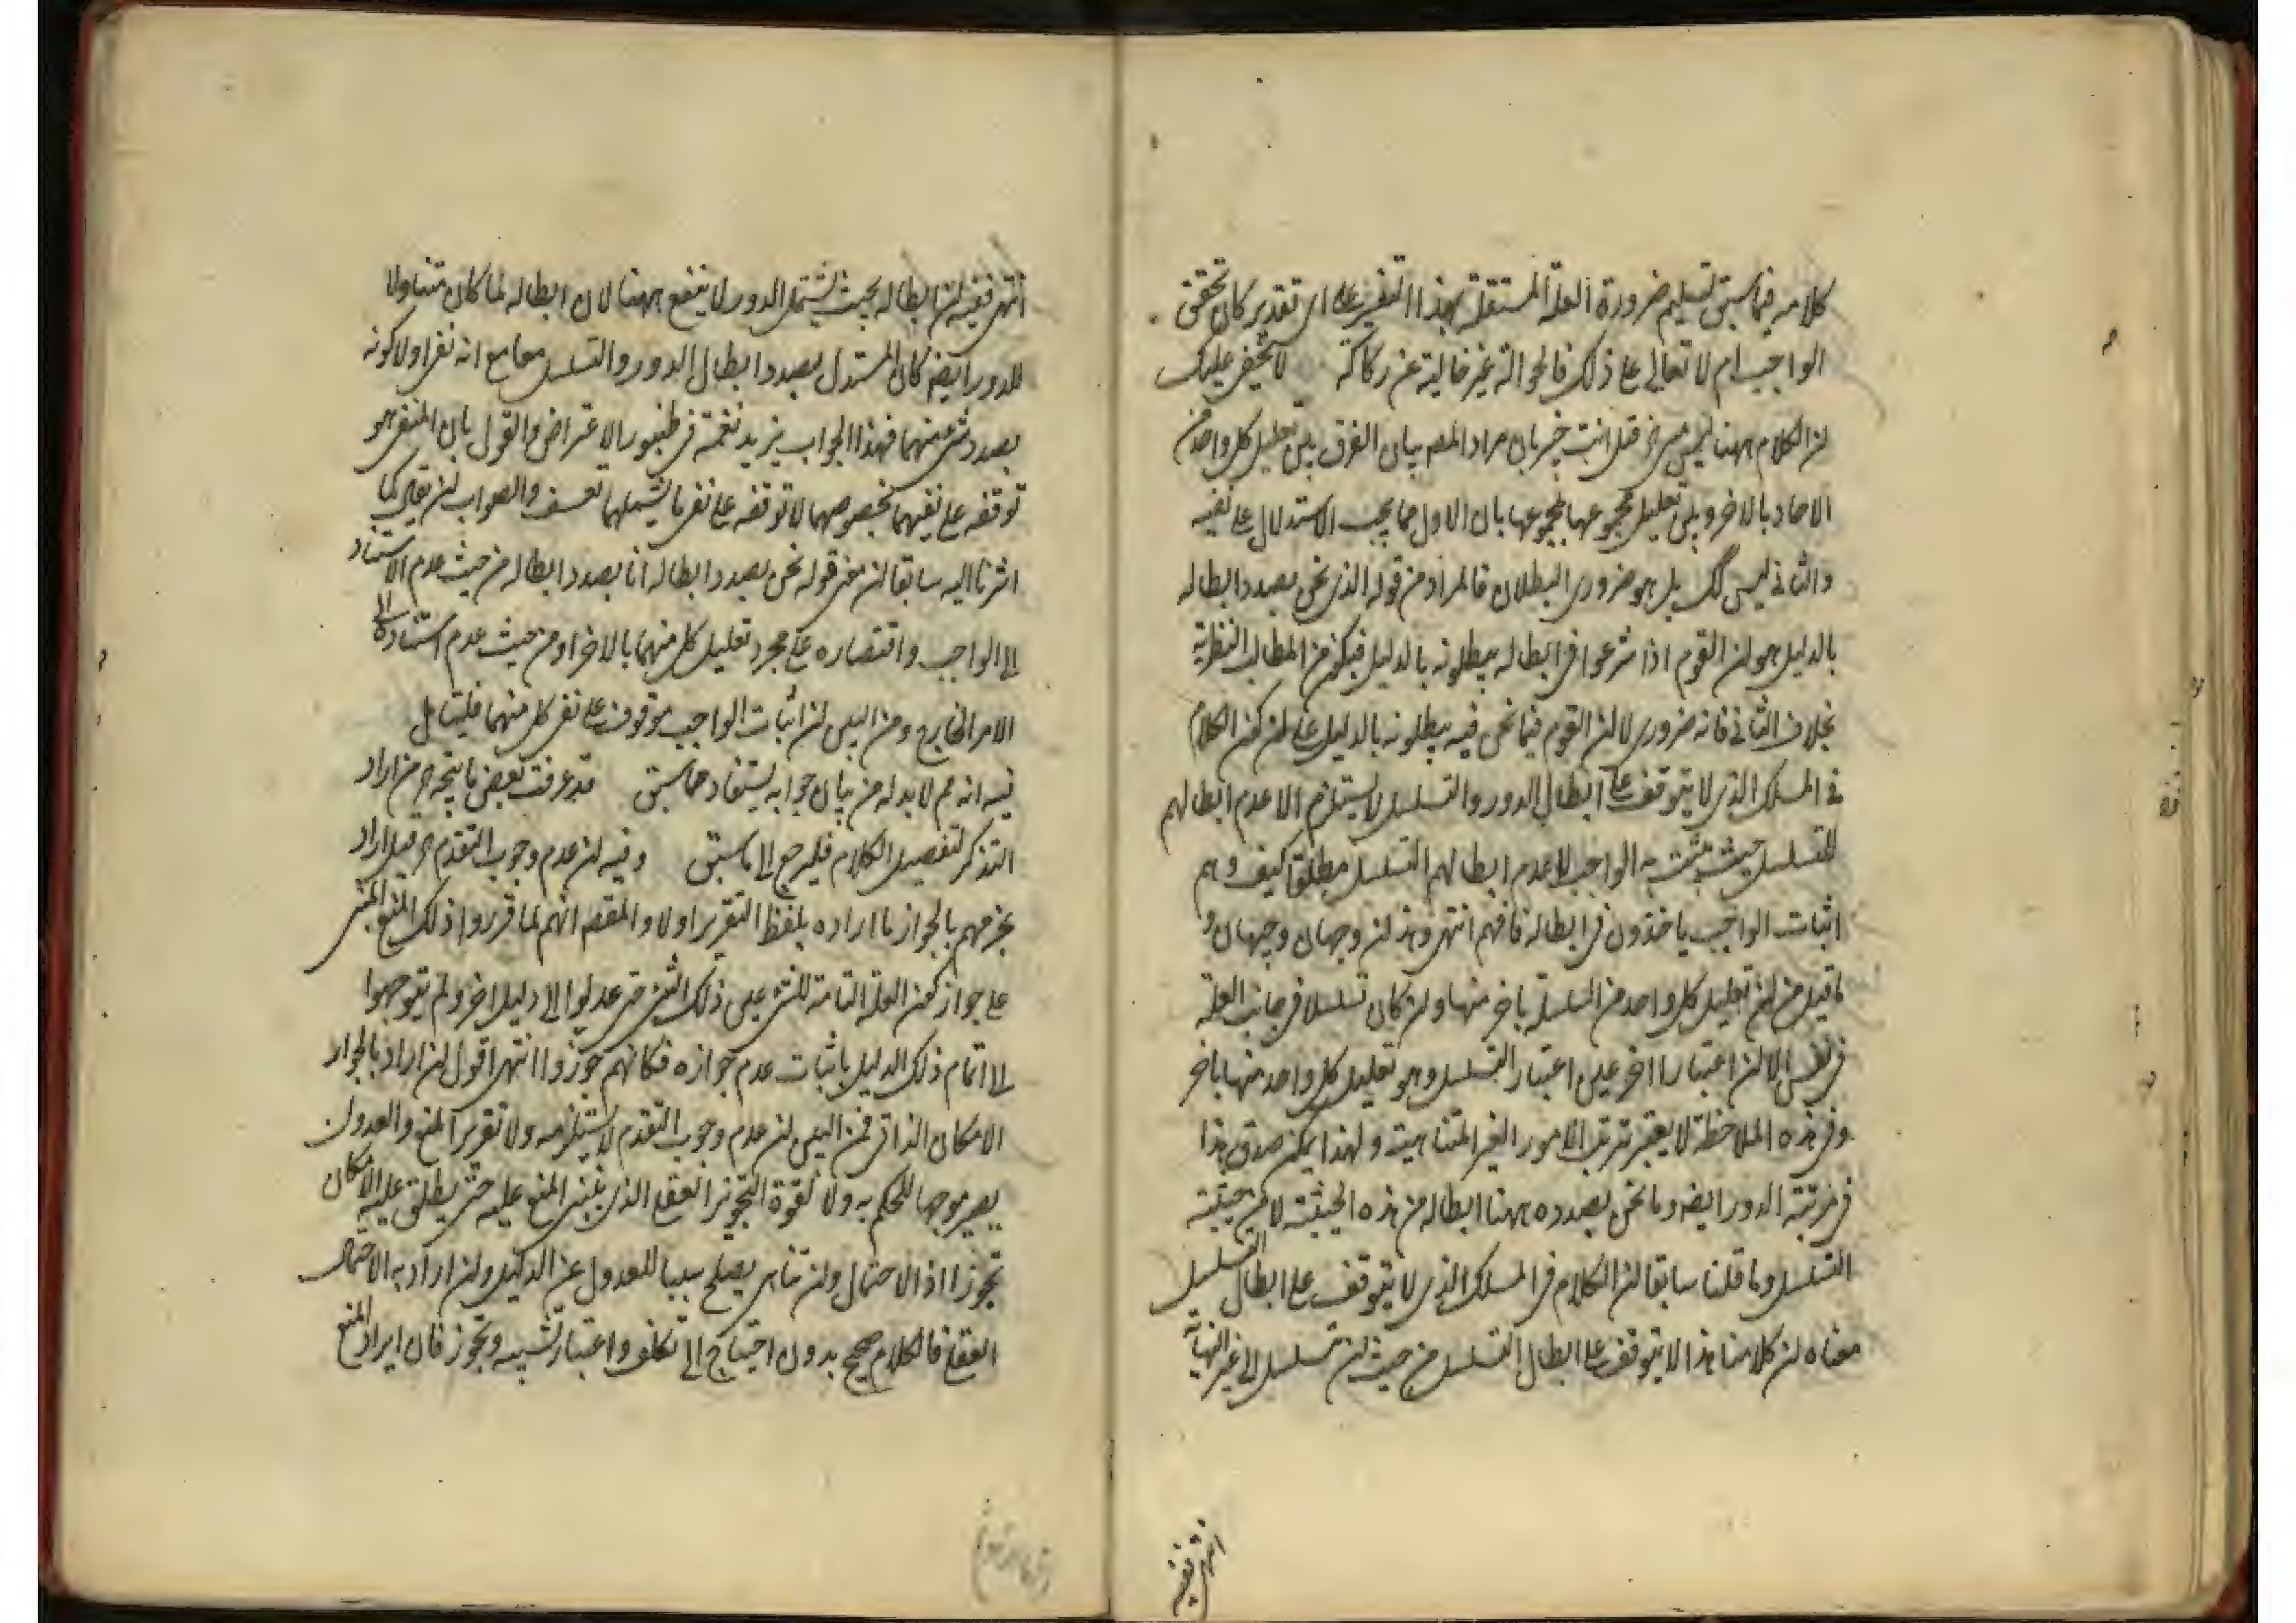 كلامه فيما سبق تسليم ضرورة العلة المستقلة بهذا التفسير على اى تقدير كان تحقق
الواجب ام لا تعالى على ذلك فالحوالة غير خالية عن ركاكة لا يخفى عليك
ان الكلام ههنا ليس انت خبير بان مراد المصـ بيان الفرق بين تعليل كل واحد من
الاحاد بالاخر وبين تعليل مجموعها بمجموعها بان الاول مما يجب الاستدلال على نفيه
والثانى ليس كك بل هو ضرورى البطلان فالمراد من قوله الذى نحن بصدد ابطاله
بالدليل هو ان القوم اذا شرعوا فى ابطاله يبطلونه بالدليل فيكون من المطالب النظرية
بخلاف الثانى فانه ضرورى لا ان القوم فيما نحن فيه يبطلونه بالدليل على ان كون الكلام
فى المسلك الذى لا يتوقف على ابطال الدور والتسلسل لا يستلزم الا عدم ابطالهم
التسلسل حيث يثبت به الواجب لا عدم ابطالهم التسلسل مطلقا كيف وهم
اثبات الواجب ياخذون فى ابطاله فافهم انتهى وهذان وجهان وجيهان
ما قيل من ان تعليل كل واحد من السلسلة باخر منها وان كان تسلسلا فى جانب العلة
فى نفس الا ان اعتبارا اخر غير اعتبار التسلسل وهو تعليل كل واحد منها باخر
وفى هذه الملاحظة لا يعتبر ترتب الامور الغير المتناهية ولهذا يمكن صدق هذا
فى مرتبة الدور ايضا وما نحن بصدده ههنا ابطاله من هذه الحيثية لا من حيثية
التسلسل وما قلنا سابقا ان الكلام فى المسلك الذى لا يتوقف على ابطال التسلسل
معناه ان كلامنا هذا لا يتوقف على ابطال التسلسل من حيث ان تسلسل الى غير النهاية
انتهى ففيه
انتهى ففيه ان ابطاله بحيث يشمل الدور لا ينفع ههنا لان ابطاله لما كان متناولا
للدور ايضا كان المستدل بصدد ابطال الدور والتسلسل معا مع انه نفى اولا كونه
بصدد شئ منهما فهذا الجواب يزيد نغمة فى طنبور الاعتراض والقول بان المنفى هو
توقفه على نفيهما بخصوصهما لا توقفه على نفى ما يشملهما تعسف والصواب ان يقال كما
اشرنا اليه سابقا ان معنى قوله نحن بصدد ابطاله انا بصدد ابطاله من حيث عدم الاستناد
الى الواجب واقتصاره على مجرد تعليل كل منهما بالاخر او من حيث عدم استناده الى
الامر الخارج ومن البين ان اثبات الواجب موقوف على نفى كل منهما فليتامل
فيه انه لا بد له من بيان جوابه يستفاد مما سبق قد عرفت بعض ما يتجه من اراد
التذكر لتفصيل الكلام فليرجع الى ما سبق وفيه ان عدم وجوب التقدم اراد
بجزمهم بالجواز ما اراده بلفظ التقرير اولا والمقصـ انهم لما قرروا ذلك المنع المبنى
على جواز كون العلة التامة للشئ عين ذلك الشئ حتى عدلوا الى دليل اخر ولم يتوجهوا
الى اتمام ذلك الدليل باثبات عدم جوازه فكانهم جوزوا انتهى اقول ان اراد بالجواز
الامكان الذاتى فمن البين ان عدم وجوب التقدم لا يستلزمه ولا تقرير المنع والعدول
يصير موجبا للحكم به ولا لقوة التجويز العقلى الذى يبتنى المنع عليه حتى يطلق عليه الامكان
تجوزا اذ الاحتمال وان تناهى يصلح سببا للعدول عن الدليل وان اراد به الاحتمال
العقلى فالكلام صحيح بدون احتياج الى تكلف واعتبار تشبيه وتجوز فان ايراد المنع